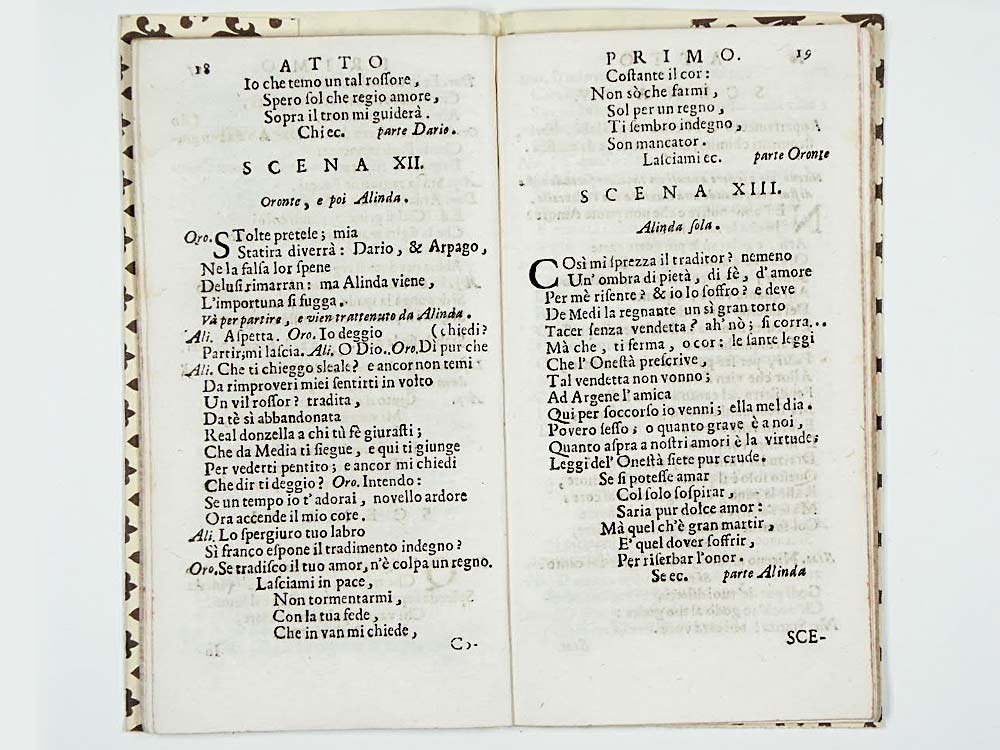 18 ATTO
Io che temo un tal roſſore,
Spero ſol che regio amore,
Sopra il tron mi guiderà.
Chi ec. parte Dario.
SCENA XII.
Oronte, e poi Alinda.
Oro. STolte pretele; mia
Statira diverrà: Dario, & Arpago,
Ne la falſa lor ſpene
Deluſi rimarran: ma Alinda viene,
L'importuna ſi fugga.
Và per partire, e vien trattenuto da Alinda.
Ali. Aſpetta. Oro. Io deggio (chiedi?
Partir; mi laſcia. Ali. O Dio.. Oro. Dì pur che
Ali. Che ti chieggo sleale? e ancor non temi
Da rimproveri miei ſentirti in volto
Un vil roſſor? tradita,
Da tè sì abbandonata
Real donzella a chi tù fè giuraſti;
Che da Media ti ſiegue, e qui ti giunge
Per vederti pentito; e ancor mi chiedi
Che dir ti deggio? Oro. Intendo:
Se un tempo io t'adorai, novello ardore
Ora accende il mio core.
Ali. Lo ſpergiuro tuo labro
Sì franco eſpone il tradimento indegno?
Oro. Se tradiſco il tuo amor, n'è colpa un regno.
Laſciami in pace,
Non tormentarmi,
Con la tua fede,
Che in van mi chiede,
Co-
PRIMO. 19
Coſtante il cor:
Non sò che farmi,
Sol per un regno,
Ti ſembro indegno,
Son mancator.
Laſciami ec. parte Oronte
SCENA XIII.
Alinda ſola.
COsì mi ſprezza il traditor? nemeno
Un' ombra di pietà, di fè, d'amore
Per mè riſente? & io lo ſoffro? e deve
De Medi la regnante un sì gran torto
Tacer ſenza vendetta? ah' nò; ſi corra...
Mà che, ti ferma, o cor: le ſante leggi
Che l'Oneſtà preſcrive,
Tal vendetta non vonno;
Ad Argene l'amica
Qui per ſoccorſo io venni; ella mel dia.
Povero ſeſſo; o quanto grave è a noi,
Quanto aſpra a noſtri amori è la virtude;
Leggi del' Oneſtà ſiete pur crude.
Se ſi poteſſe amar
Col ſolo ſoſpirar,
Saria pur dolce amor:
Mà quel ch'è gran martir,
E' quel dover ſoffrir,
Per riſerbar l'onor.
Se ec. parte Alinda
SCE-